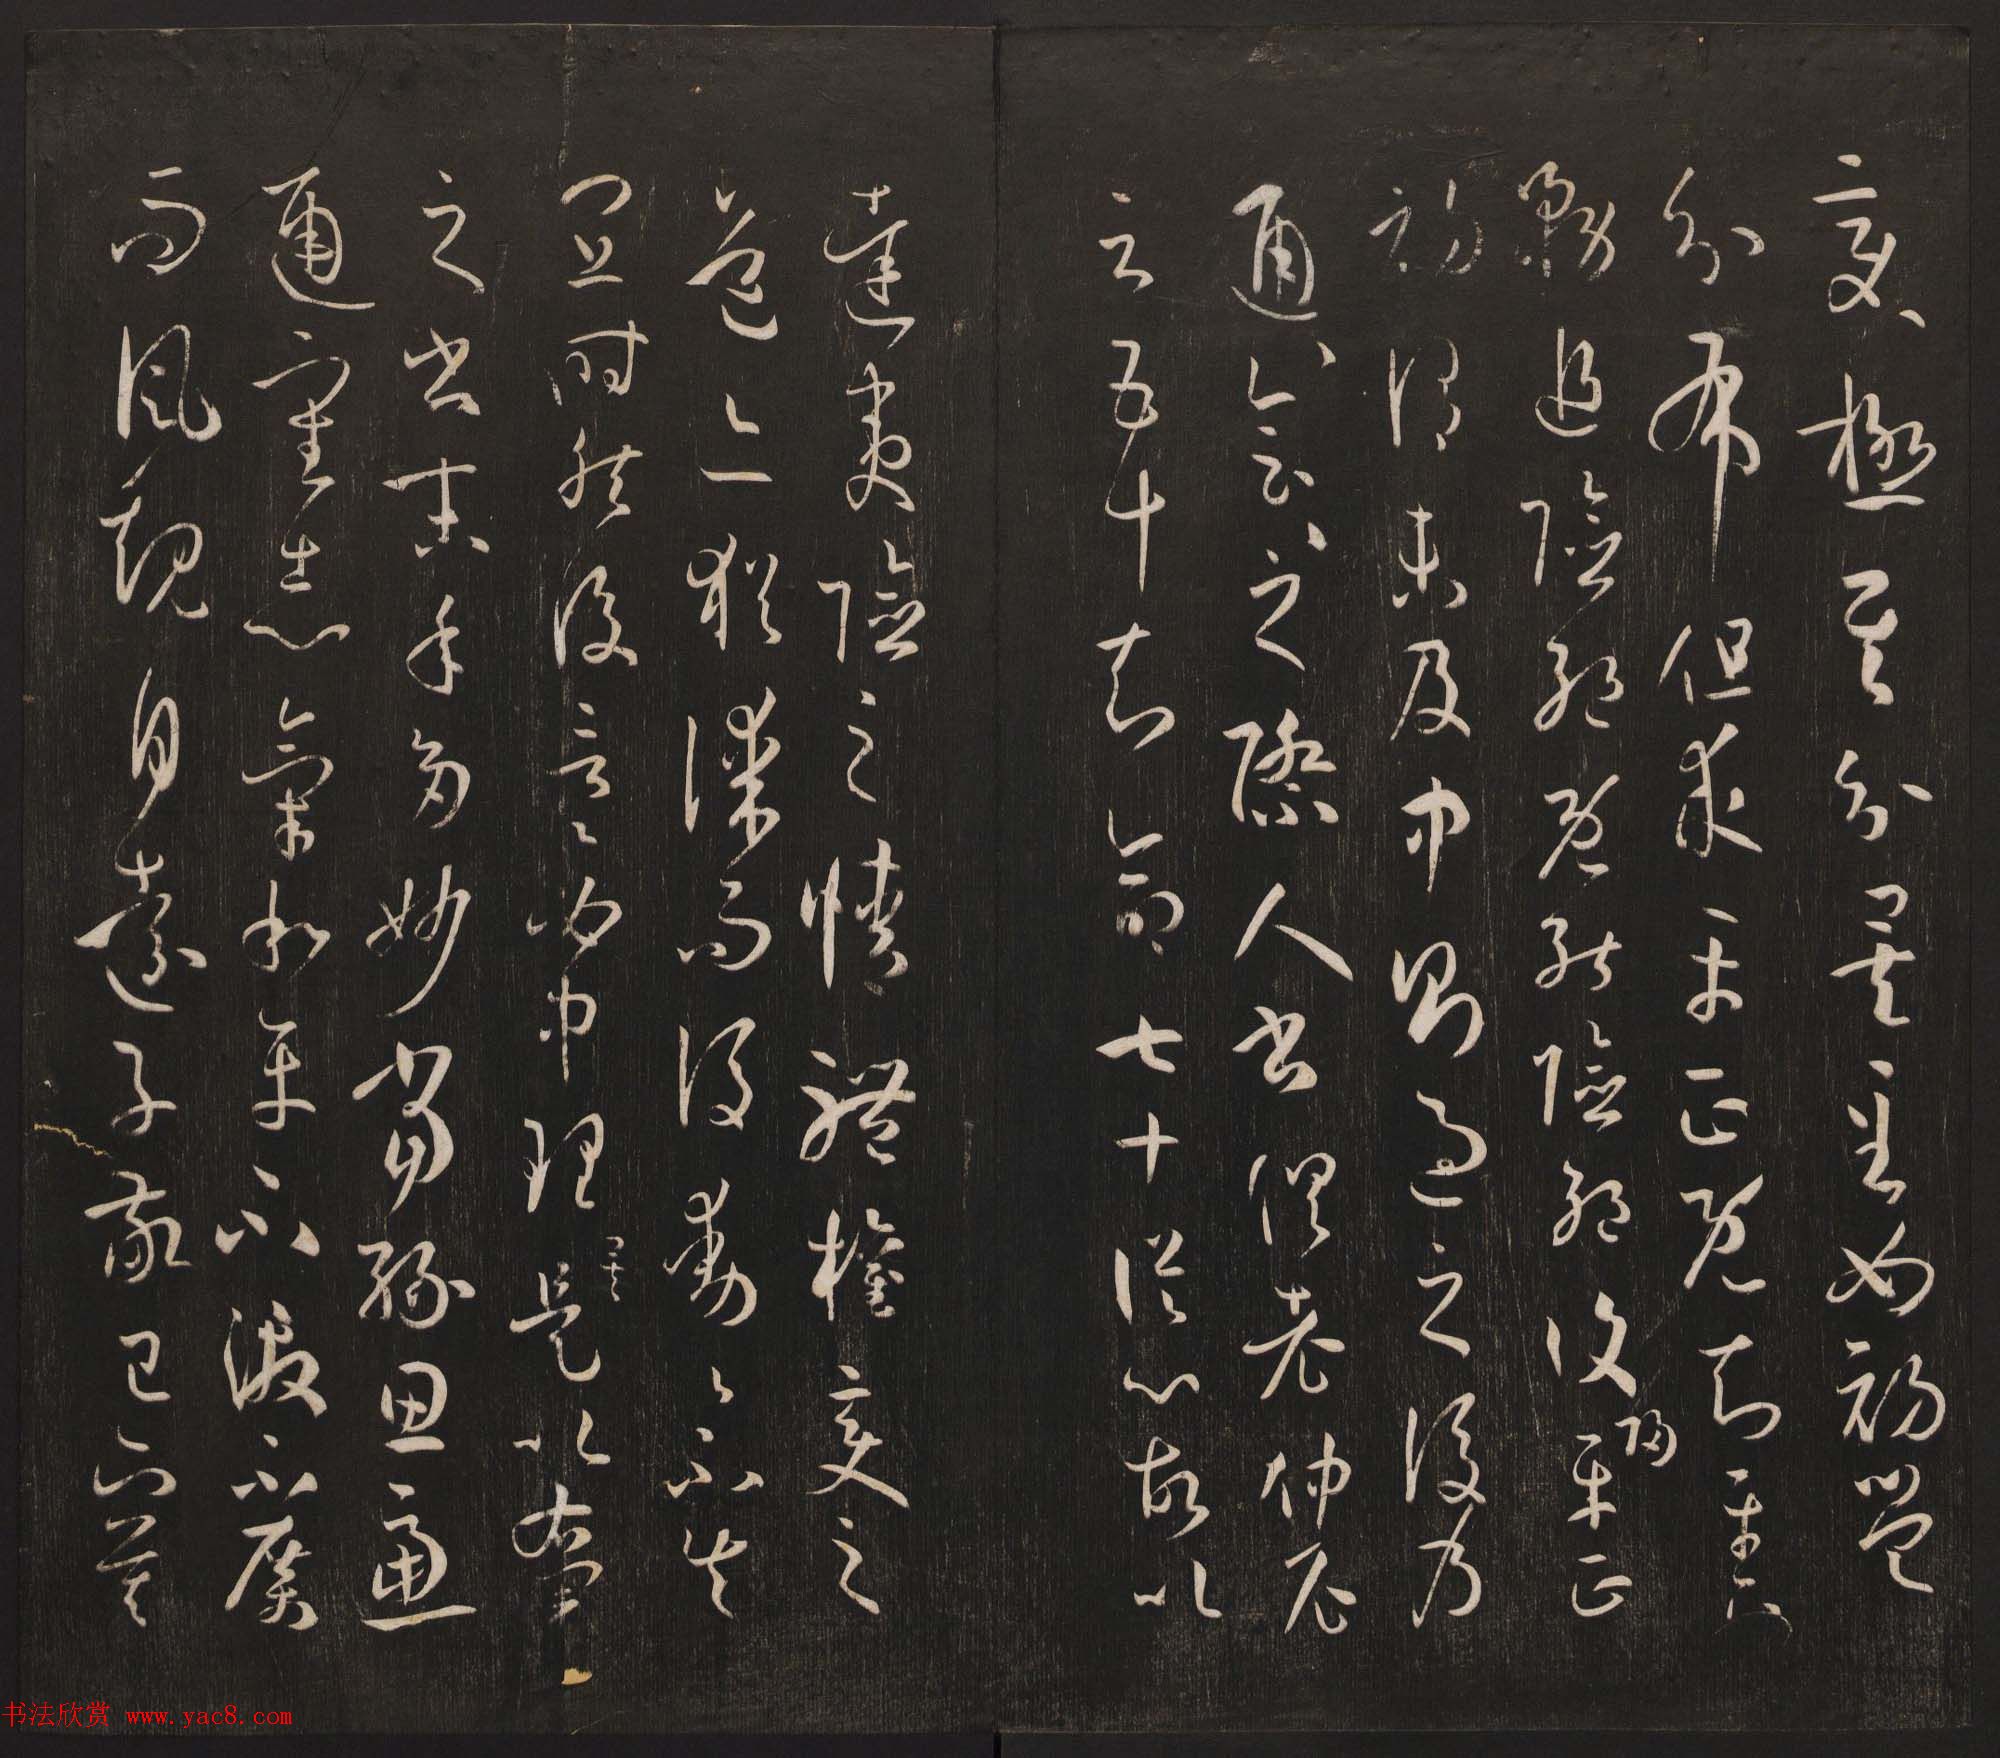 變極其分矣至如初學
分布但求平正既知平正
務追險絕既能險絕復歸平正
初謂未及中則過之後乃
通〻會〻之際人書俱老仲尼
云五十知命七十從心故以
達夷險之情體權變之
道亦猶謀而後動〻不失
宜時然後言〻必中理矣是以右軍
之書末年多妙當緣思慮
通審志氣和平不激不厲
而風規自遠子敬已下莫
书法欣赏 www.yac8.com